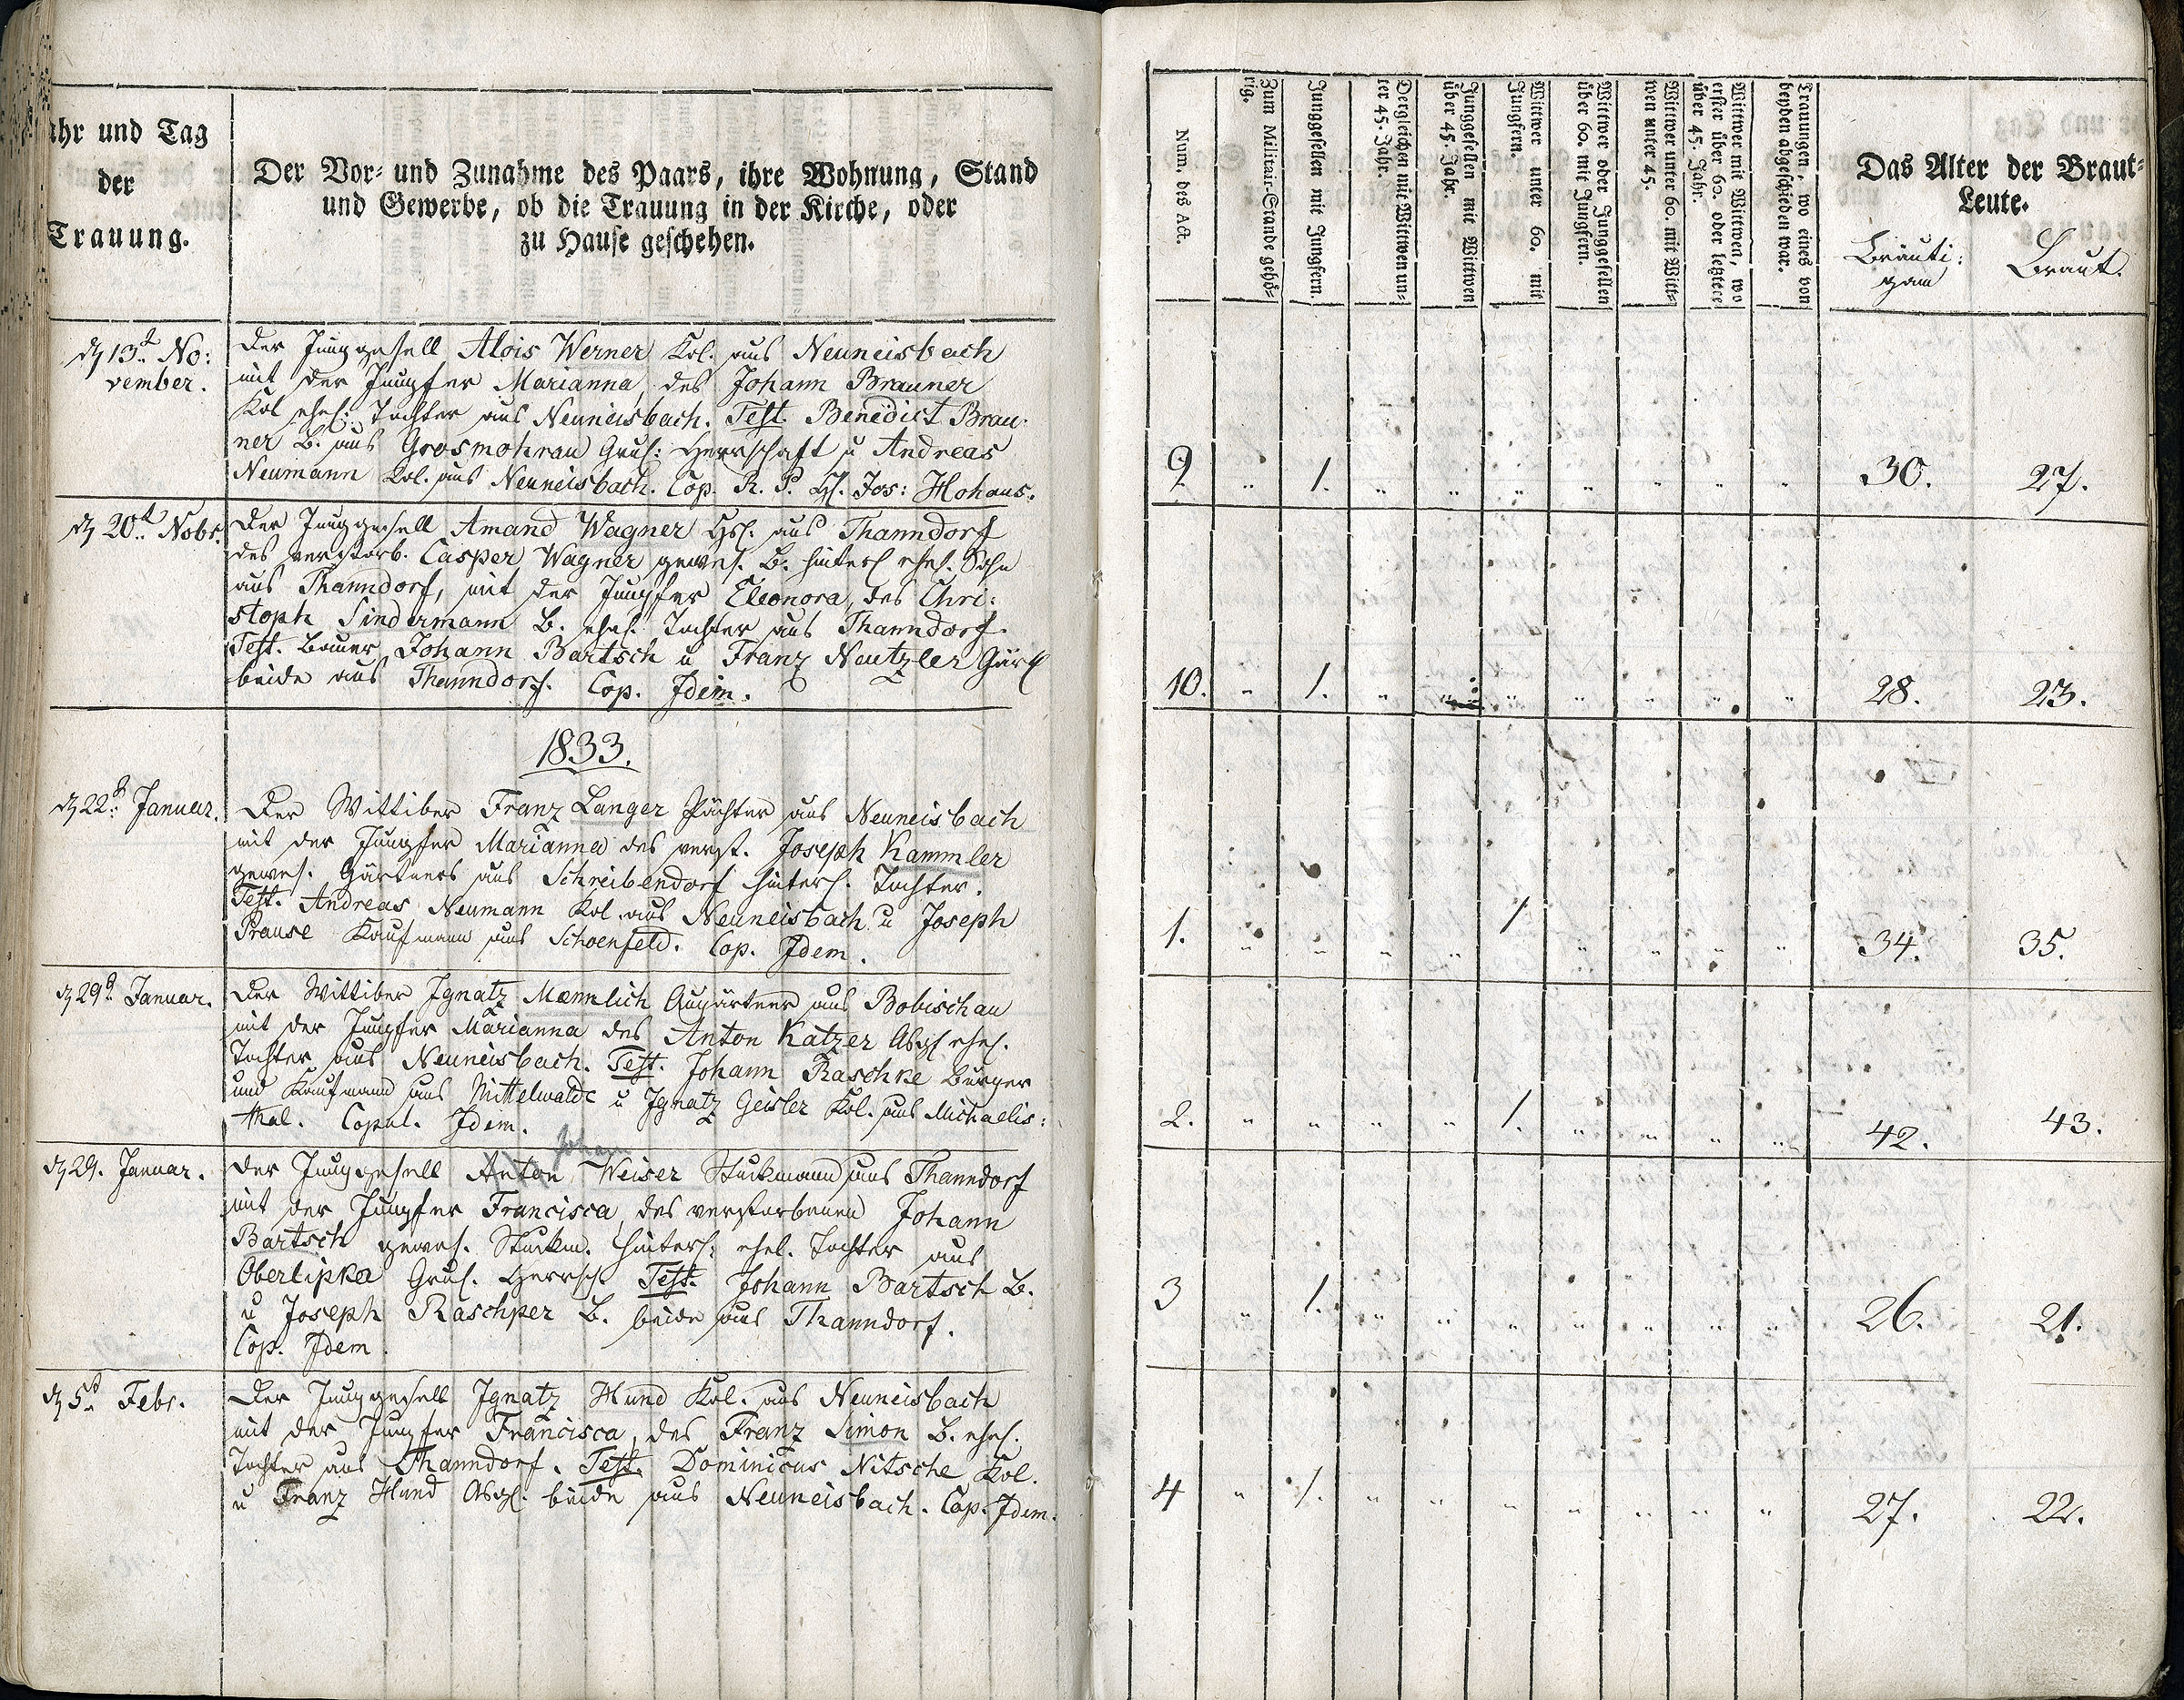 ahr und Tag
der
Trauung.
Der Vor- und Zunahme des Paars, ihre Wohnung, Stand
und Gewerbe, ob die Trauung in der Kirche, oder
zu Hause geschehen.
13t No:
vember.
Der Junggesell Alois Werner Kol. aus Neuneisbach
mit der Jungfer Marianna, des Johann Brauner
Kol ehel. Tochter aus Neuneisbach. Test. Benedict Brau-
ner B. aus Grosmohrau Grul: Herrschaft u Andreas
Neumann Kol. aus Neuneisbach. Cop. R. P. H. Jos: Hohaus.
20t Nobr.
Der Junggesell Amand Wagner Hsl. aus Thanndorf
des verstorb. Casper Wagner gewes. B. hinterl ehel. Sohn
aus Thanndorf, mit der Jungfer Eleonora, des Chri:
stoph Sindermann B. ehel. Tochter aus Thanndorf.
Test. Bauer Johann Bartsch u Franz Neutzler Gärtl
beide aus Thanndorf. Cop. Idem.
1833.
22t Januar.
Der Wittiber Franz Langer Pächter aus Neuneisbach
mit der Jungfer Marianna des verst. Joseph Kammler
gewes. Gärtners aus Schreibendorf hinterl. Tochter.
Test. Andreas Neumann Kol. aus Neuneisbach u Joseph
Prause Kaufmann aus Schoenfeld. Cop. Idem.
29t Januar.
Der Wittiber Ignatz Mænnlich Augärtner aus Bobischau
mit der Jungfer Marianna des Anton Katzer ehel.
Tochter aus Neuneisbach. Test. Johann Raschke Bürger
und Kaufmann aus Mittelwalde u Ignatz Geisler Kol. aus Michaelis:
thal. Copul. Idem.
Johann
29. Januar.
Der Junggesell Anton Weiser Stückmann aus Thanndorf
mit der Jungfer Francisca, des verstorbenen Johann
Bartsch gewes. Stückm. hinterl: ehel. Tochter aus
Oberlipka Grul. Herrsch. Test. Johann Bartsch B.
u Joseph Raschper B. beide aus Thanndorf.
Cop. Idem.
5t Febr.
Der Junggesell Ignatz Hund Kol. aus Neuneisbach
mit der Jungfer Francisca, des Franz Simon B. ehel.
Tochter aus Thanndorf. Test. Dominicus Nitsche Kol.
u Franz Hund beide aus Neuneisbach. Cop. Idem.
Num. des Act.
Zum Militair-Stande gehö-
rig.
Junggesellen mit Jungfern.
Dergleichen mit Wittwen un-
ter 45. Jahr.
Junggesellen mit Wittwen
über 45 Jahr.
Wittwer unter 60. mit
Jungfern.
Wittwer oder Junggesellen
über 60. mit Jungfern.
Wittwer unter 60. mit Witt-
wen unter 45.
Wittwer mit Wittwen, wo
erster über 60. oder letztere
über 45. Jahr.
Trauungen, wo eines von
beyden abgeschieden war.
Das Alter der Braut-
Leute.
Bräuti:
gam
Braut.
9 " 1. " " " " " " " 30. 27.
10. " 1. " " " " " " " 28. 23.
1. " " " " 1 " " " " 34. 35.
2. " " " " 1. " " " " 42. 43.
3 " 1. " " " " " " " 26. 21.
4 " 1. " " " " " " " 27. 22.